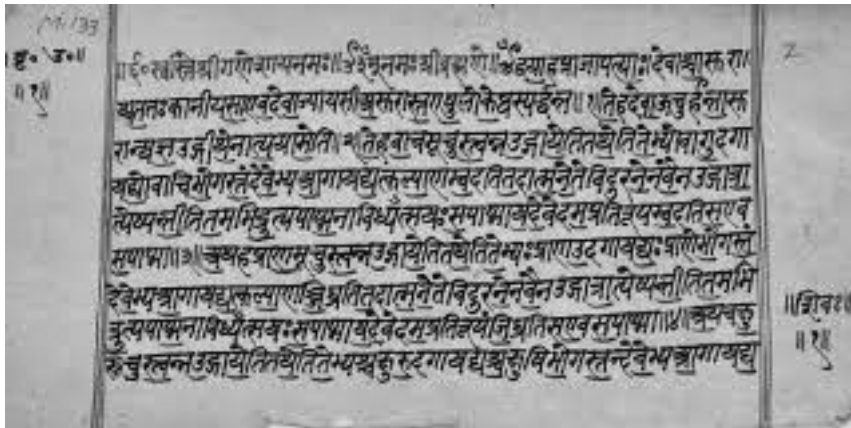 Mi. 133
2
॥ बृ॰ उ॰ ॥
॥ १ ॥
श्रीगणेशायनमः ॥ ॐ नमः श्रीब्रह्मणे ॥ ॐ द्वयाहप्राजापत्याः देवाश्चासुरा।
श्चततः कानीयसाएवदेवाज्यायसाअसुरास्तएषुलोकेष्वस्पर्द्धन्त ॥ १ ॥ तेहदेवाऊचुर्हन्तासु
रान्यज्ञउद्गीथेनात्ययामेति ॥ २ ॥ तेहवाचमूचुस्त्वन्नउद्गायेतितथेतितेभ्योवागुदगा
यद्योवाचिभोगस्तंदेवेभ्यआगायद्यत्कल्याणम्वदतितदात्मनेतेविदुरनेनवैनउद्गात्रा
त्येष्यन्तीतितमभिद्रुत्यपाप्मनाविध्यँत्सयः सपाप्मायदेवेदमप्रतिरूपम्वदतिसएव
सपाप्मा ॥ ३ ॥ अथहप्राणमूचुस्त्वन्नउद्गायेतितथेतितेभ्यः प्राणउदगायद्यः प्राणेभोगस्तं
देवेभ्यआगायद्यत्कल्याणञ्जिघ्रतितदात्मनेतेविदुरनेनवैनउद्गात्रात्येष्यन्तीतितमभि
द्रुत्यपाप्मनाविध्यँत्सयः सपाप्मायदेवेदमप्रतिरूपंजिघ्रतिसएवसपाप्मा ॥ ४ ॥ अथहचक्षु
रूचुस्त्वन्नउद्गायेतितथेतितेभ्यश्चक्षुरुदगायद्यश्चक्षुषिभोगस्तन्देवेभ्यआगायद्य
॥ शिवः ॥
॥ १ ॥